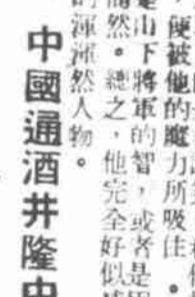 ，便被他的魔力所吸住。
山下將軍的智，或者是
然。總之，他完全好似
的渾渾然人物。
中國通酒井隆中